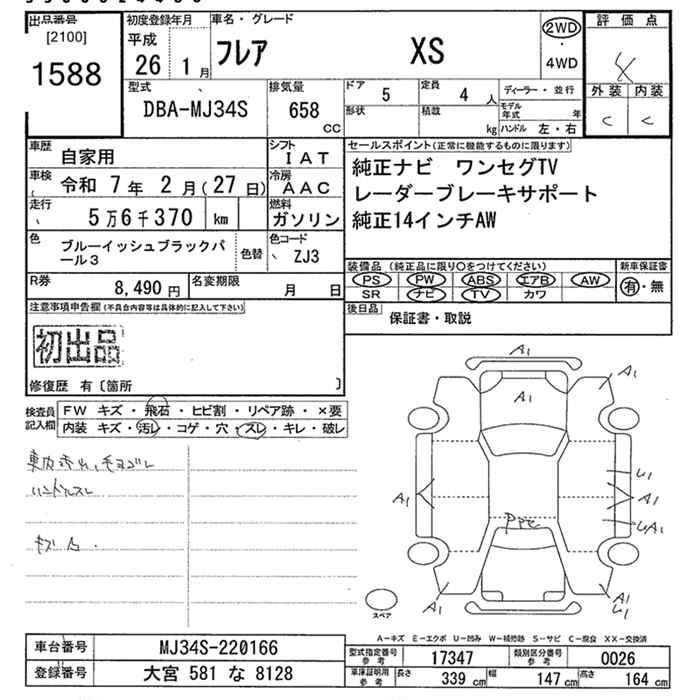 出品番号
[2100]
1588
初度登録年月
平成
26 1月
車名・グレード
フレア XS
2WD
・
4WD
評価点
4
外装 内装
C C
型式
DBA-MJ34S
排気量
658
CC
ドア 5
定員 4 人
形状
積載 kg
ディーラー・並行
モデル年式 年
ハンドル 左・右
車歴 自家用
シフト IAT
車検 令和 7年 2月(27日)
冷房 AAC
走行 5万6千370 km
燃料 ガソリン
色 ブルーイッシュブラックパール3
色替
色コード ZJ3
R券 8,490円
名変期限 月 日
セールスポイント(正常に機能するものに限ります)
純正ナビ ワンセグTV
レーダーブレーキサポート
純正14インチAW
装備品 (純正品に限り○をつけてください)
PS PW ABS エアB AW
SR ナビ TV カワ
新車保証書
有・無
後日品 保証書・取説
注意事項申告欄(不具合内容等は具体的に記入して下さい)
初出品
修復歴 有〔箇所 〕
検査員記入欄
FW キズ・飛石・ヒビ割・リペア跡・×要
内装 キズ・汚レ・コゲ・穴・スレ・キレ・破レ
ハンドルスレ
A1
A1
A1
U1
A1
A1
UA1
A1
A1
U1
スペア
A-キズ E-エクボ U-凹み W-補修跡 S-サビ C-腐食 XX-交換済
車台番号 MJ34S-220166
登録番号 大宮 581 な 8128
型式指定番号参考 17347
類別区分番号参考 0026
車庫証明用参考 長さ 339 cm 幅 147 cm 高さ 164 cm